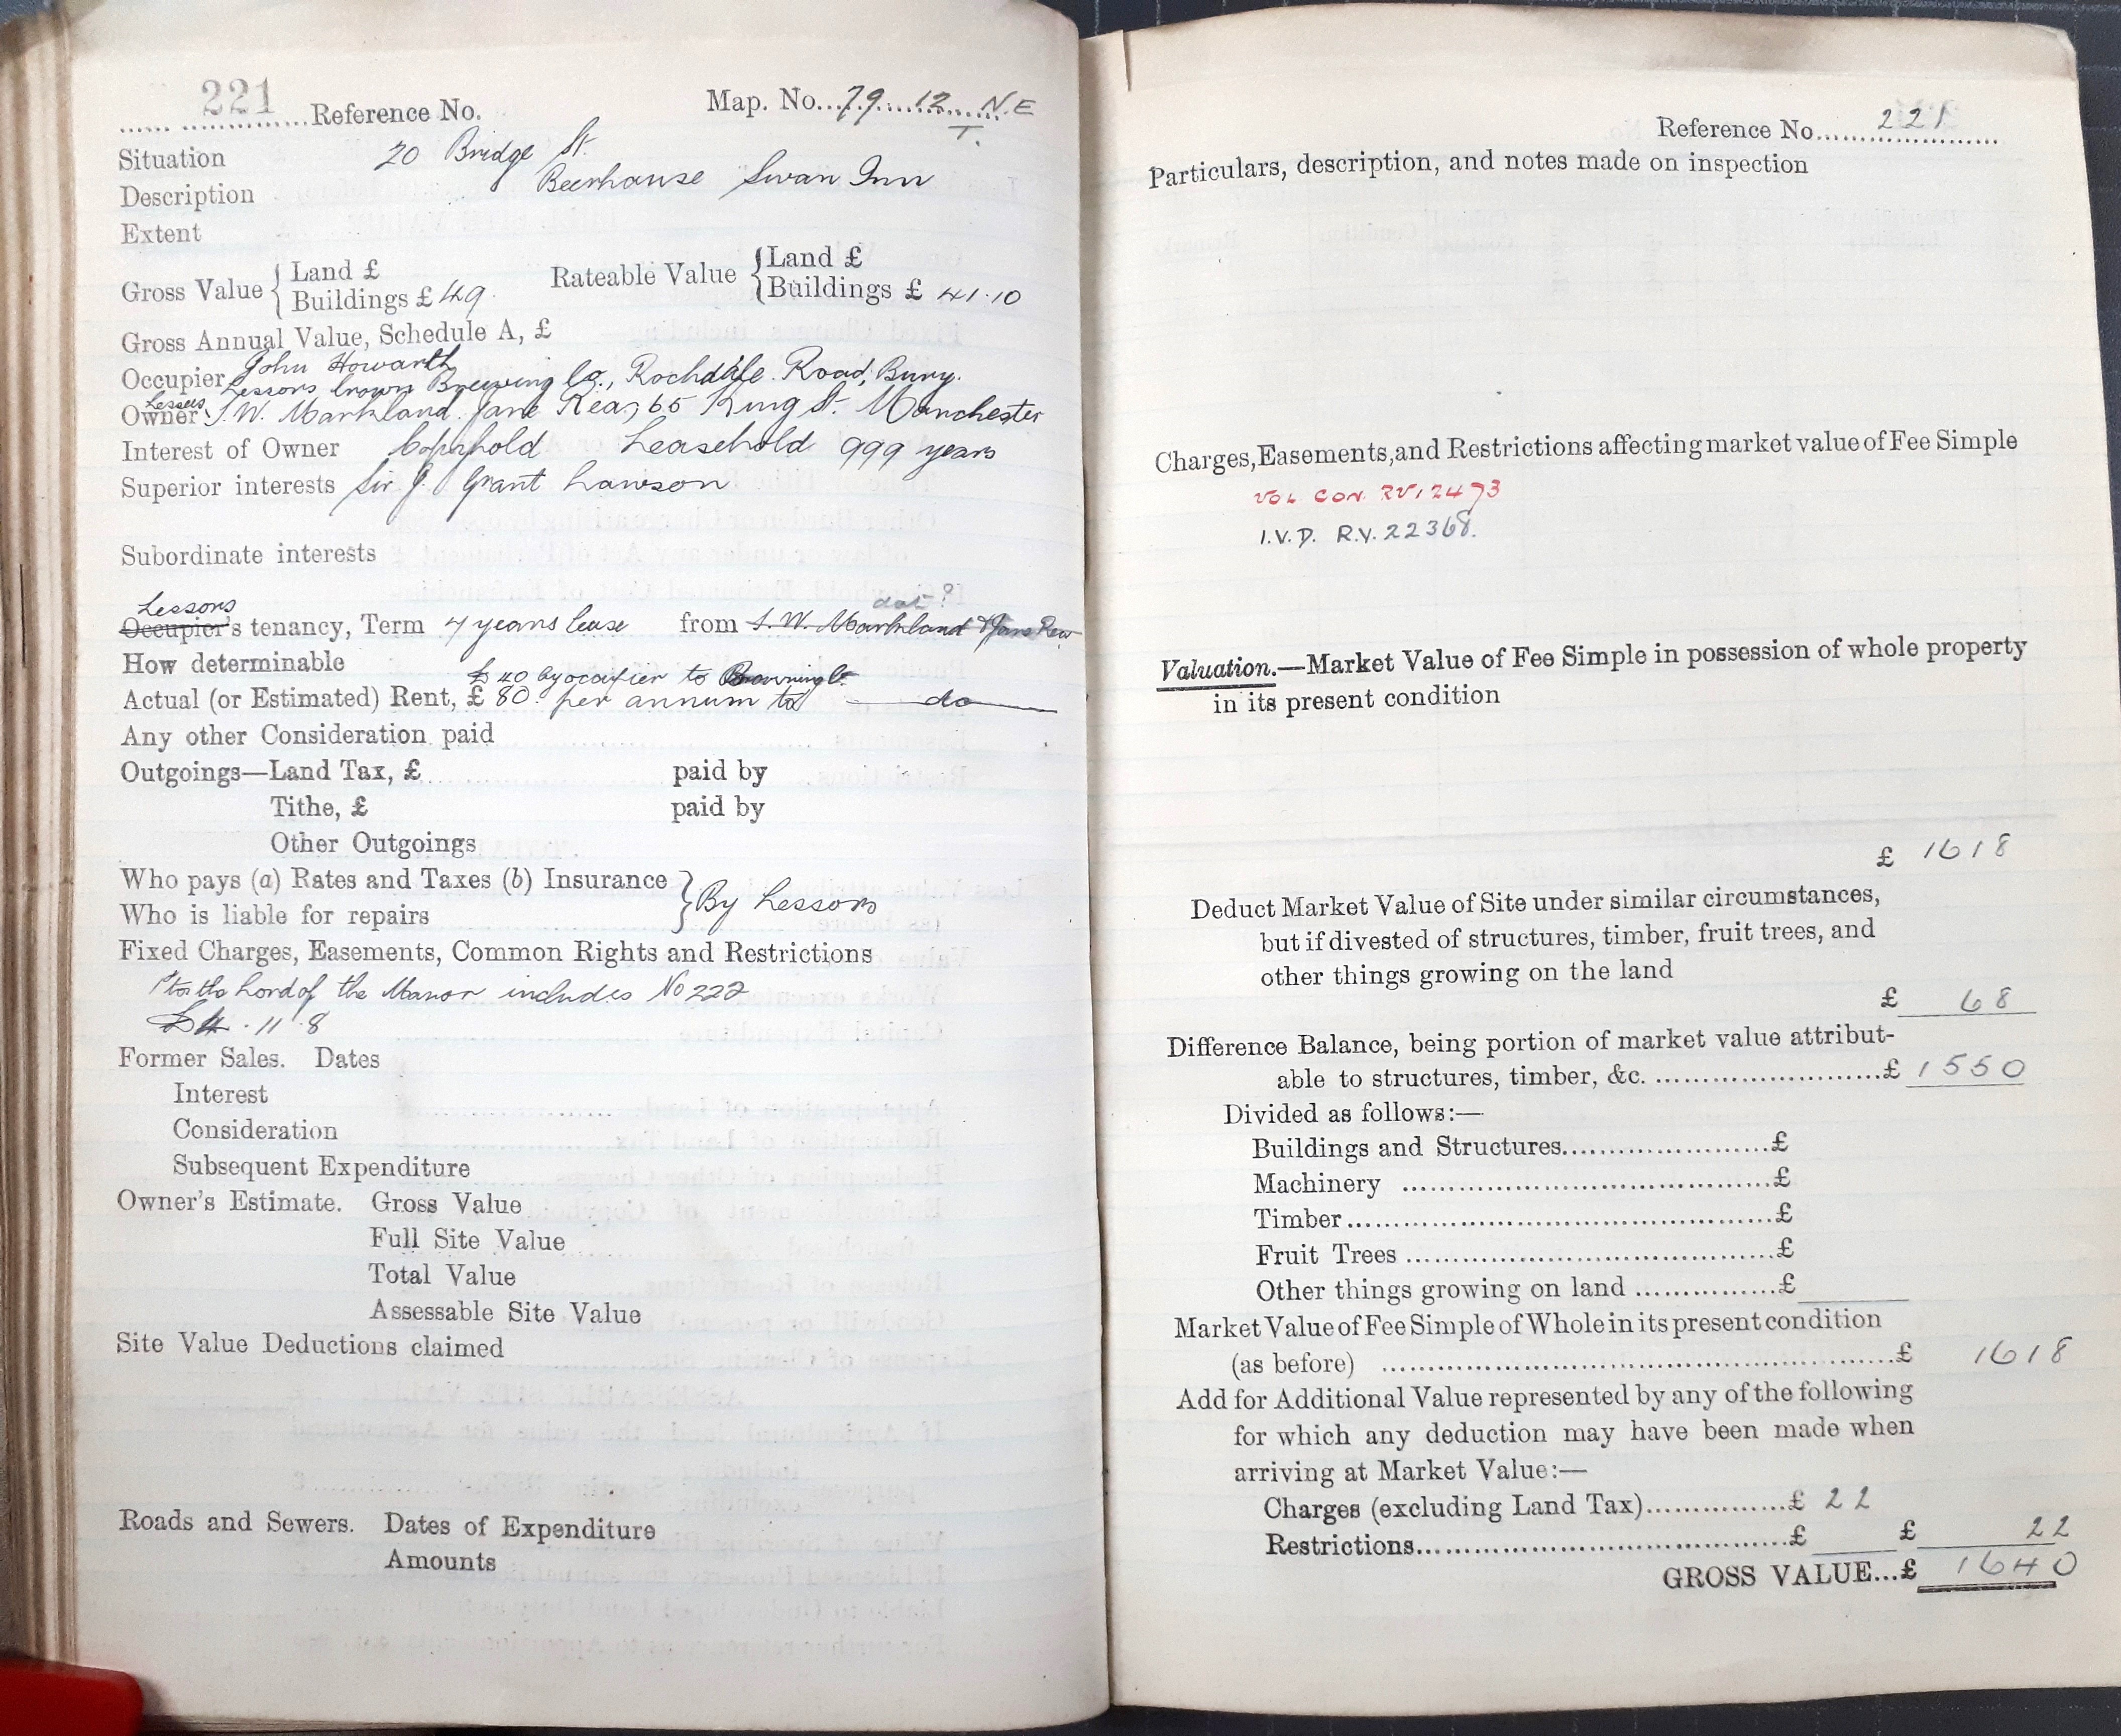 221 Reference No. Map. No. 79. 12 N.E
T.
Situation 20 Bridge St.
Description Beerhouse Swan Inn
Extent
Gross Value { Land £ Rateable Value { Land £
Buildings £ 49. Buildings £ 41.10
Gross Annual Value, Schedule A, £
John Howarth
Occupier Lessors Crown Brewing Co., Rochdale Road, Bury.
Lessees
Owner J.W. Markland. Jane Rea, 65 King St. Manchester
Interest of Owner Copyhold Leasehold 999 years
Superior interests Sir J. Grant Lawson
Subordinate interests
Lessors dat ?
Occupier's tenancy, Term 4 years lease from J.W. Markland & Jane Rea
How determinable
£40 by occupier to Brewing Co.
Actual (or Estimated) Rent, £ 80. per annum to do
Any other Consideration paid
Outgoings—Land Tax, £ paid by
Tithe, £ paid by
Other Outgoings
Who pays (a) Rates and Taxes (b) Insurance } By Lessors
Who is liable for repairs
Fixed Charges, Easements, Common Rights and Restrictions
to the Lord of the Manor includes No 222
£4.11.8
Former Sales. Dates
Interest
Consideration
Subsequent Expenditure
Owner's Estimate. Gross Value
Full Site Value
Total Value
Assessable Site Value
Site Value Deductions claimed
Roads and Sewers. Dates of Expenditure
Amounts
Reference No. 221
Particulars, description, and notes made on inspection
Charges, Easements, and Restrictions affecting market value of Fee Simple
VOL CON. RV12473
I.V.D. R.V. 22368.
Valuation.—Market Value of Fee Simple in possession of whole property
in its present condition
£ 1618
Deduct Market Value of Site under similar circumstances,
but if divested of structures, timber, fruit trees, and
other things growing on the land
£ 68
Difference Balance, being portion of market value attribut-
able to structures, timber, &c. £ 1550
Divided as follows:—
Buildings and Structures £
Machinery £
Timber £
Fruit Trees £
Other things growing on land £
Market Value of Fee Simple of Whole in its present condition
(as before) £ 1618
Add for Additional Value represented by any of the following
for which any deduction may have been made when
arriving at Market Value:—
Charges (excluding Land Tax) £ 22
Restrictions £ £ 22
GROSS VALUE...£ 1640